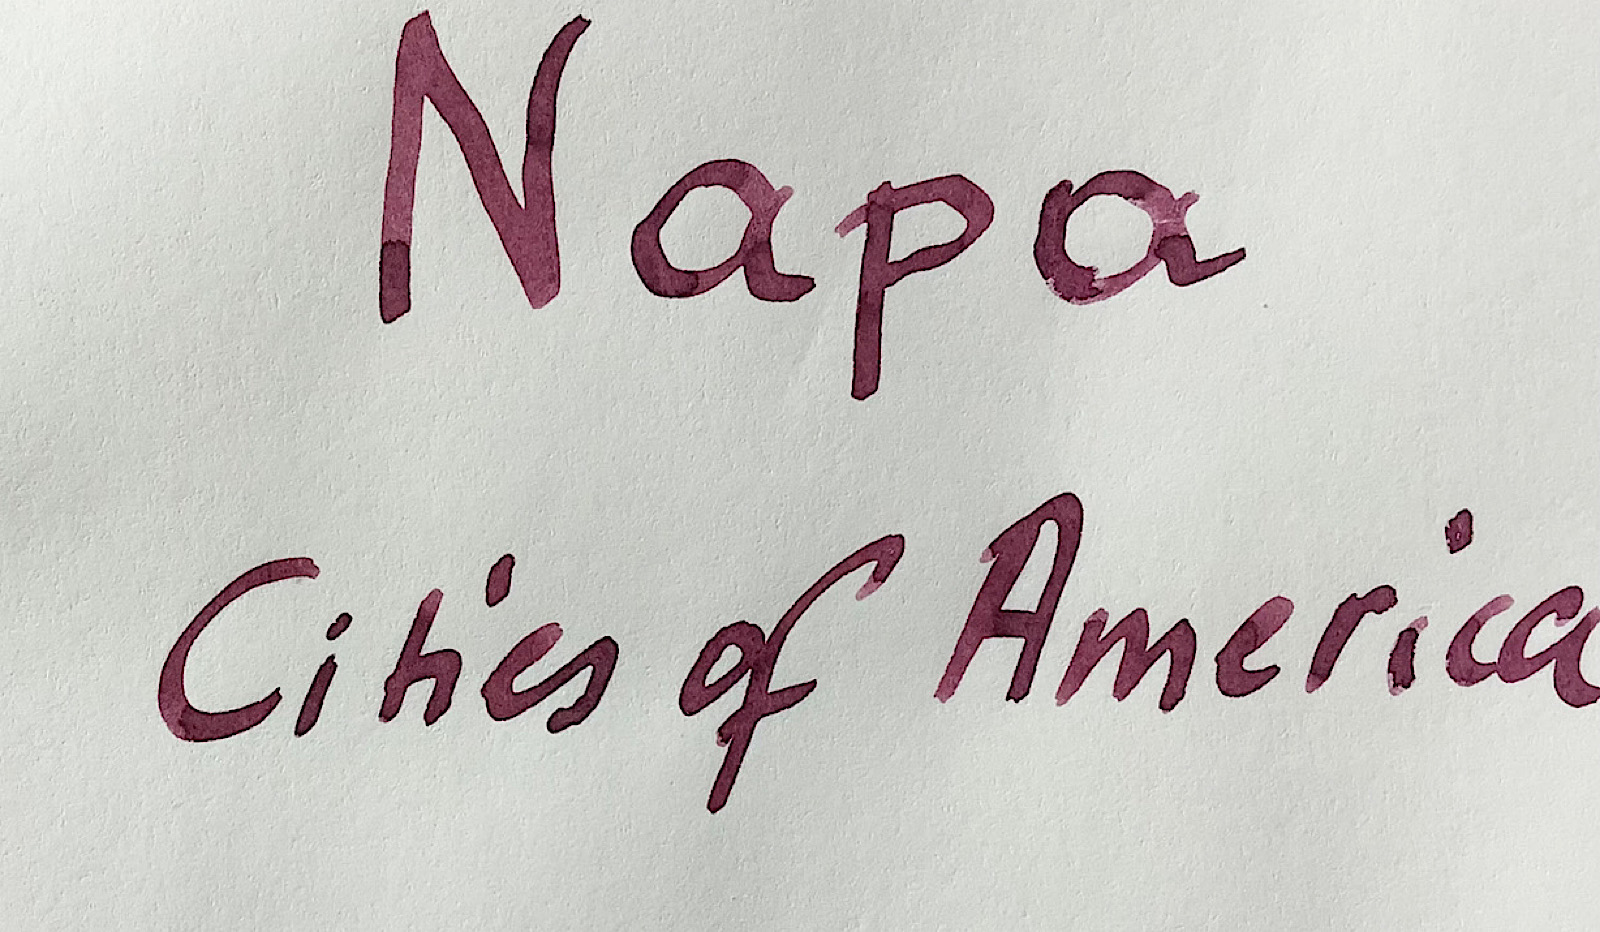 Napa
Cities of America